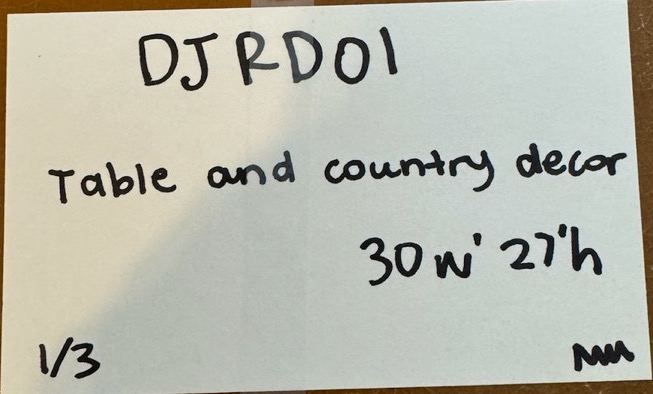 DJRD01
Table and country decor
30w' 27'h
1/3